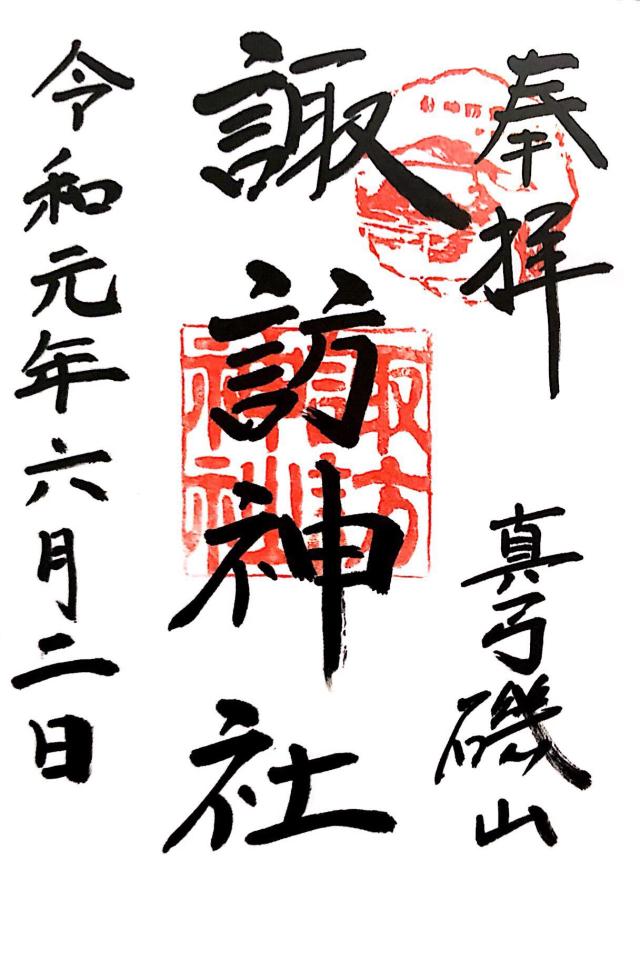 奉拝
真弓磯山
諏訪神社
諏訪
神社
令和元年六月二日